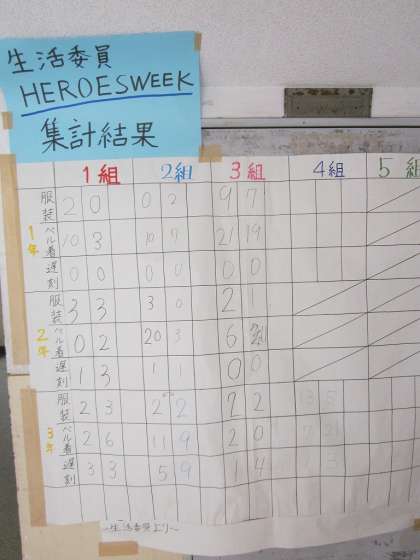 生活委員
HEROESWEEK
集計結果
1組 2組 3組 4組 5組
1年
服装 2 0 0 2 9 7
ベル着 10 3 10 7 21 19
遅刻 0 0 0 0 0 0
2年
服装 3 3 3 0 2 1
ベル着 0 2 20 3 6
遅刻 1 3 1 1 0 0
3年
服装 2 3 2 2 7 2
ベル着 2 6 11 9 2 0
遅刻 3 3 5 9 1 4
～生活委員より～